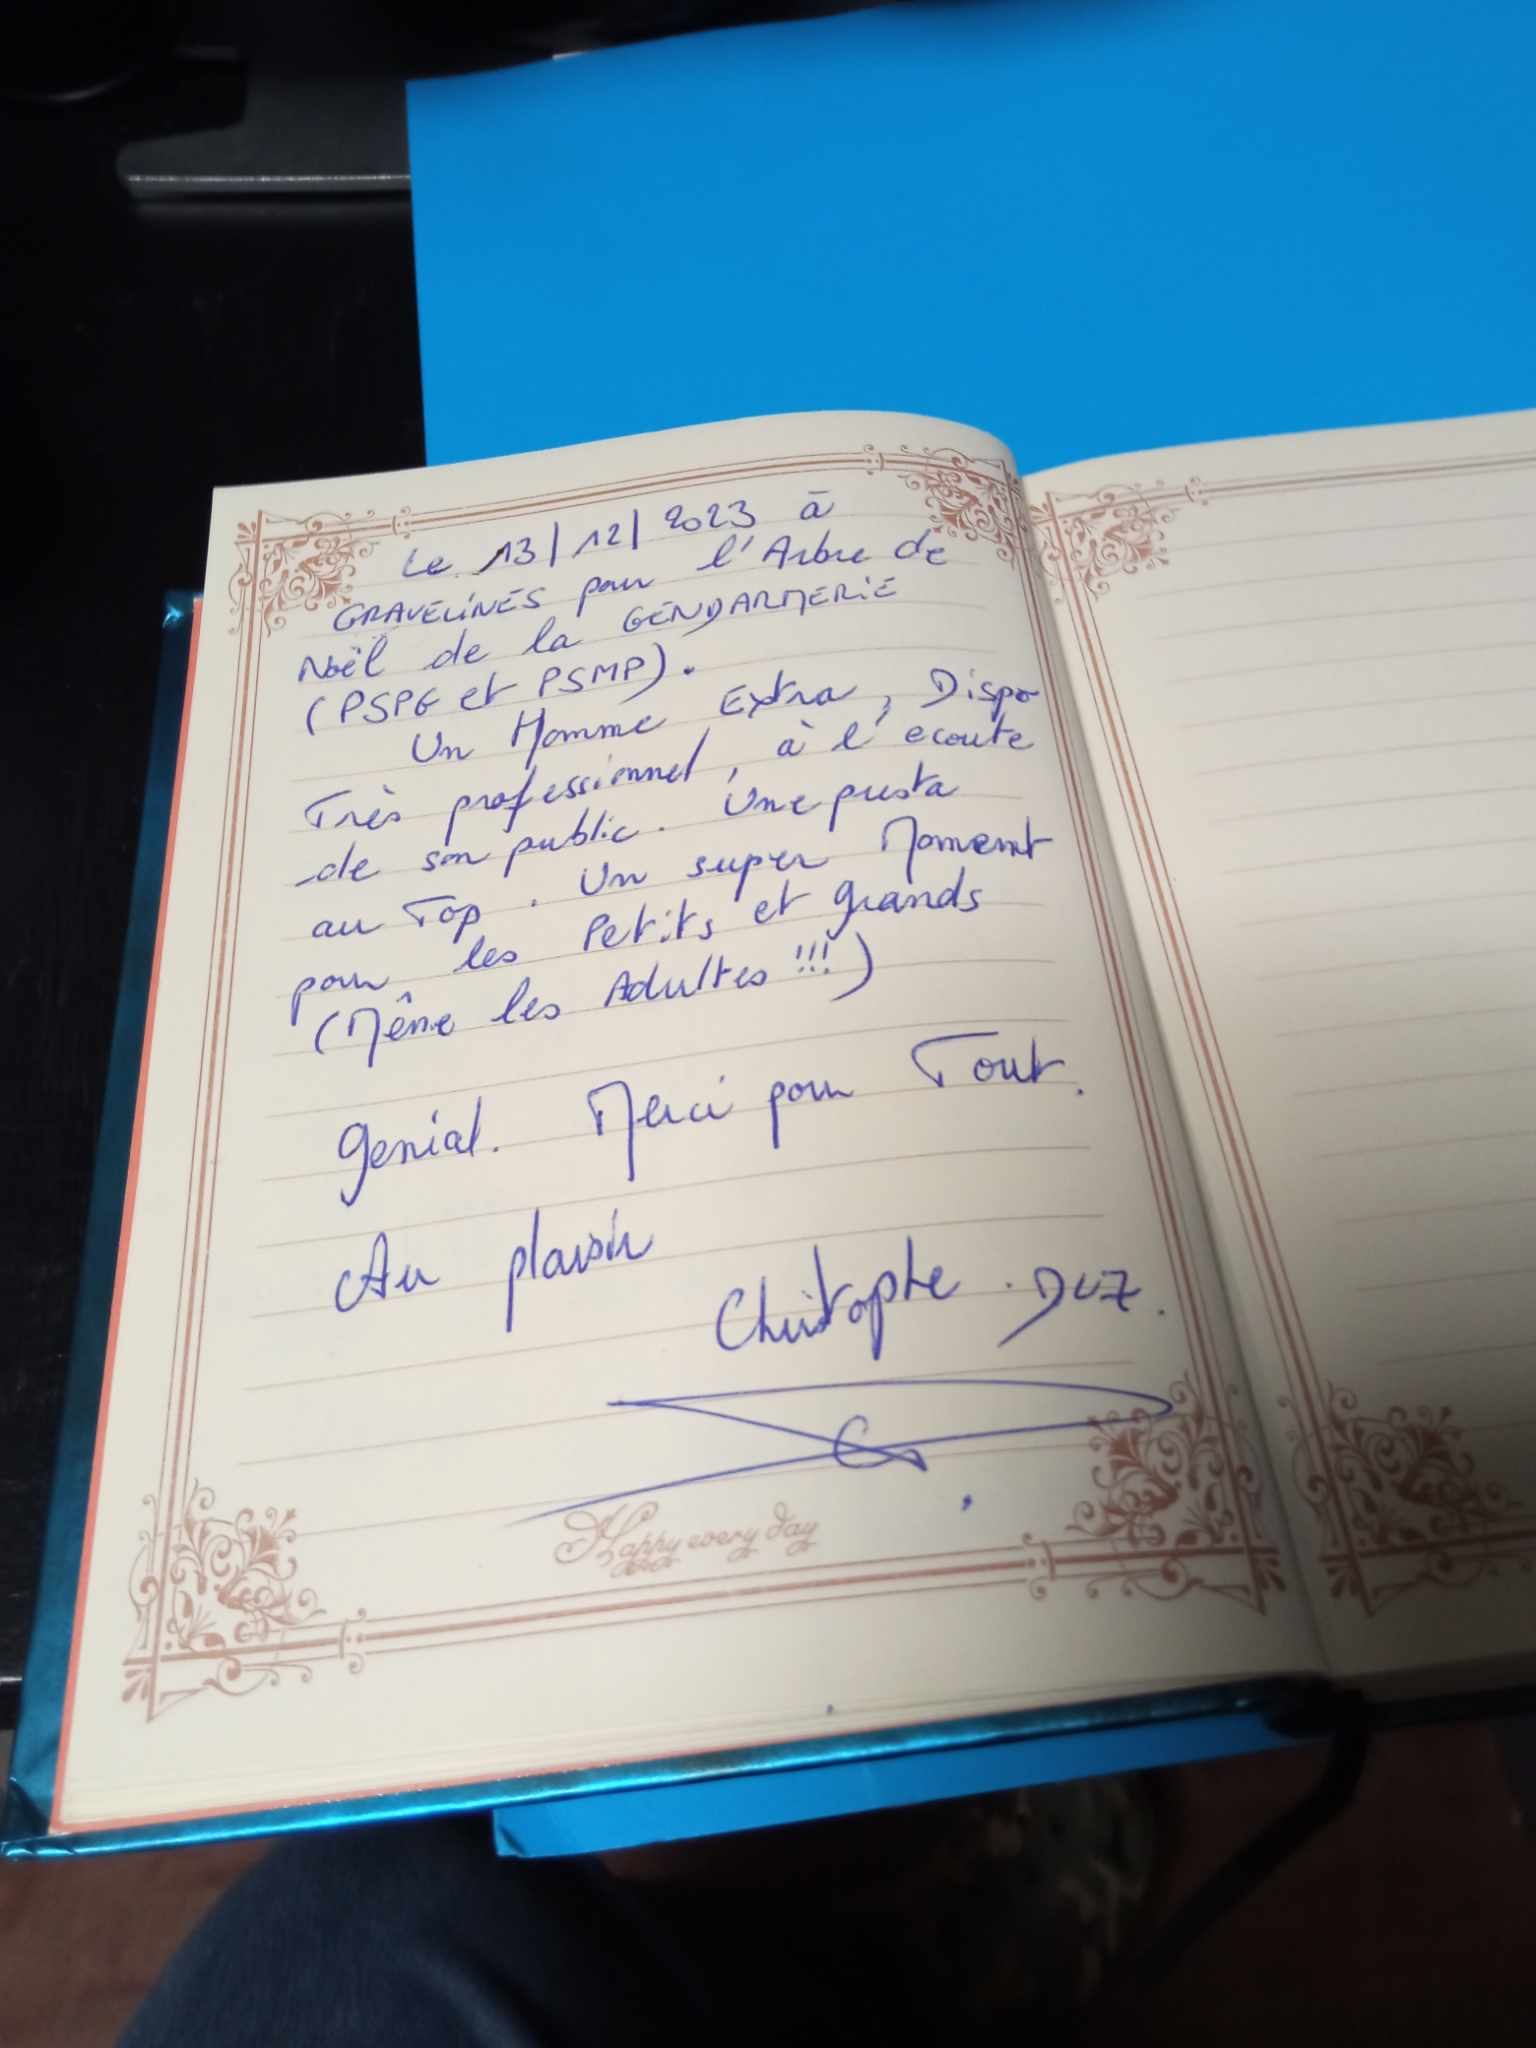 Le 13/12/2023 à
GRAVELINES pour l'Arbre de
Noël de la GENDARMERIE
(PSPG et PSMP).
Un Homme Extra, Dispo
Très professionnel, à l'ecoute
de son public. Une presta
au Top. Un super Moment
pour les Petits et grands
(Même les Adultes !!!)
genial. Merci pour Tout.
Au plaisir
Christophe. DUZ.
Happy every day